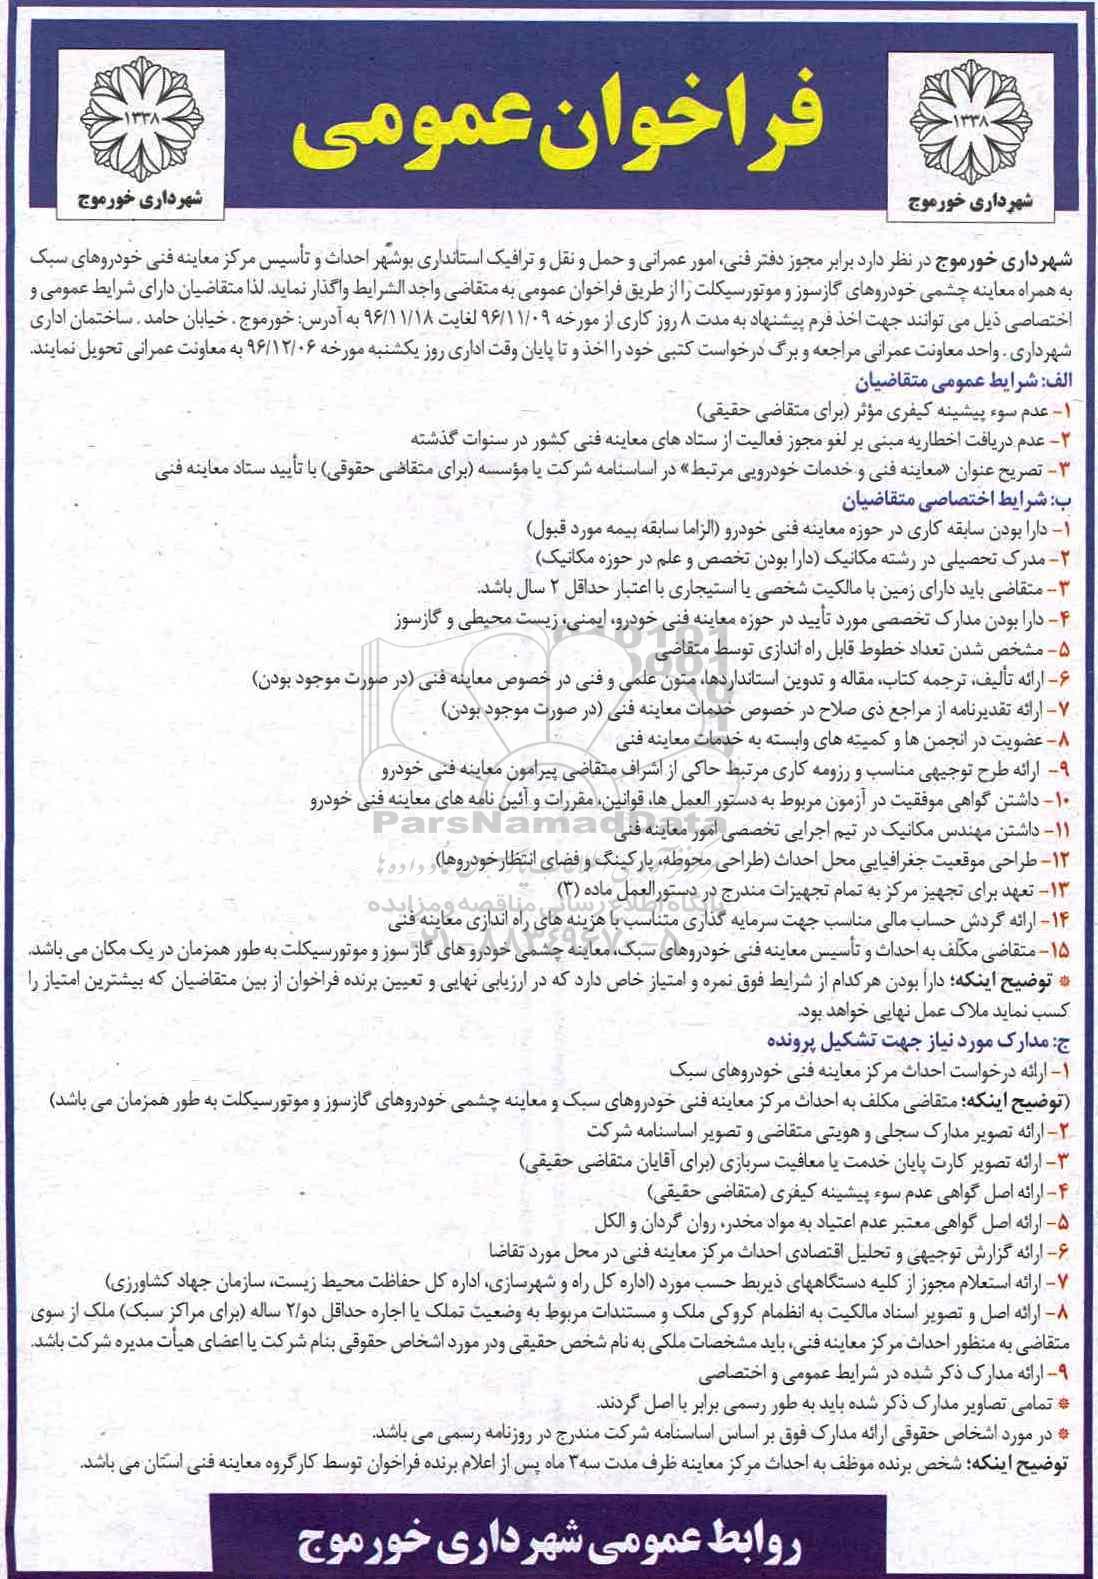 فراخوان عمومی
۱۳۳۸
شهرداری خورموج
۱۳۳۸
شهرداری خورموج
شهرداری خورموج در نظر دارد برابر مجوز دفتر فنی، امور عمرانی و حمل و نقل و ترافیک استانداری بوشهر احداث و تأسیس مرکز معاینه فنی خودروهای سبک
به همراه معاینه چشمی خودروهای گازسوز و موتورسیکلت را از طریق فراخوان عمومی به متقاضی واجد الشرایط واگذار نماید. لذا متقاضیان دارای شرایط عمومی و
اختصاصی ذیل می توانند جهت اخذ فرم پیشنهاد به مدت ۸ روز کاری از مورخه ۹۶/۱۱/۰۹ لغایت ۹۶/۱۱/۱۸ به آدرس: خورموج ـ خیابان حامد ـ ساختمان اداری
شهرداری ـ واحد معاونت عمرانی مراجعه و برگ درخواست کتبی خود را اخذ و تا پایان وقت اداری روز یکشنبه مورخه ۹۶/۱۲/۰۶ به معاونت عمرانی تحویل نمایند.
الف: شرایط عمومی متقاضیان
۱- عدم سوء پیشینه کیفری مؤثر (برای متقاضی حقیقی)
۲- عدم دریافت اخطاریه مبنی بر لغو مجوز فعالیت از ستاد های معاینه فنی کشور در سنوات گذشته
۳- تصریح عنوان «معاینه فنی و خدمات خودرویی مرتبط» در اساسنامه شرکت یا مؤسسه (برای متقاضی حقوقی) با تأیید ستاد معاینه فنی
ب: شرایط اختصاصی متقاضیان
۱- دارا بودن سابقه کاری در حوزه معاینه فنی خودرو (الزاما سابقه بیمه مورد قبول)
۲- مدرک تحصیلی در رشته مکانیک (دارا بودن تخصص و علم در حوزه مکانیک)
۳- متقاضی باید دارای زمین با مالکیت شخصی یا استیجاری با اعتبار حداقل ۲ سال باشد.
۴- دارا بودن مدارک تخصصی مورد تأیید در حوزه معاینه فنی خودرو، ایمنی، زیست محیطی و گازسوز
۵- مشخص شدن تعداد خطوط قابل راه اندازی توسط متقاضی
۶- ارائه تألیف، ترجمه کتاب، مقاله و تدوین استانداردها، متون علمی و فنی در خصوص معاینه فنی (در صورت موجود بودن)
۷- ارائه تقدیرنامه از مراجع ذی صلاح در خصوص خدمات معاینه فنی (در صورت موجود بودن)
۸- عضویت در انجمن ها و کمیته های وابسته به خدمات معاینه فنی
۹- ارائه طرح توجیهی مناسب و رزومه کاری مرتبط حاکی از اشراف متقاضی پیرامون معاینه فنی خودرو
۱۰- داشتن گواهی موفقیت در آزمون مربوط به دستور العمل ها، قوانین، مقررات و آئین نامه های معاینه فنی خودرو
ParsNamadData
۱۱- داشتن مهندس مکانیک در تیم اجرایی تخصصی امور معاینه فنی
۱۲- طراحی موقعیت جغرافیایی محل احداث (طراحی محوطه، پارکینگ و فضای انتظارخودروها)
۱۳- تعهد برای تجهیز مرکز به تمام تجهیزات مندرج در دستورالعمل ماده (۳)
پایگاه اطلاع رسانی مناقصه و مزایده
۱۴- ارائه گردش حساب مالی مناسب جهت سرمایه گذاری متناسب با هزینه های راه اندازی معاینه فنی
۰۲۱-۸۸۳۴۹۶۷۰-۵
۱۵- متقاضی مکلف به احداث و تأسیس معاینه فنی خودروهای سبک، معاینه چشمی خودرو های گاز سوز و موتورسیکلت به طور همزمان در یک مکان می باشد.
* توضیح اینکه؛ دارا بودن هر کدام از شرایط فوق نمره و امتیاز خاص دارد که در ارزیابی نهایی و تعیین برنده فراخوان از بین متقاضیان که بیشترین امتیاز را
کسب نماید ملاک عمل نهایی خواهد بود.
ج: مدارک مورد نیاز جهت تشکیل پرونده
۱- ارائه درخواست احداث مرکز معاینه فنی خودروهای سبک
(توضیح اینکه؛ متقاضی مکلف به احداث مرکز معاینه فنی خودروهای سبک و معاینه چشمی خودروهای گازسوز و موتورسیکلت به طور همزمان می باشد)
۲- ارائه تصویر مدارک سجلی و هویتی متقاضی و تصویر اساسنامه شرکت
۳- ارائه تصویر کارت پایان خدمت یا معافیت سربازی (برای آقایان متقاضی حقیقی)
۴- ارائه اصل گواهی عدم سوء پیشینه کیفری (متقاضی حقیقی)
۵- ارائه اصل گواهی معتبر عدم اعتیاد به مواد مخدر، روان گردان و الکل
۶- ارائه گزارش توجیهی و تحلیل اقتصادی احداث مرکز معاینه فنی در محل مورد تقاضا
۷- ارائه استعلام مجوز از کلیه دستگاههای ذیربط حسب مورد (اداره کل راه و شهرسازی، اداره کل حفاظت محیط زیست، سازمان جهاد کشاورزی)
۸- ارائه اصل و تصویر اسناد مالکیت به انظمام کروکی ملک و مستندات مربوط به وضعیت تملک یا اجاره حداقل دو/۲ ساله (برای مراکز سبک) ملک از سوی
متقاضی به منظور احداث مرکز معاینه فنی، باید مشخصات ملکی به نام شخص حقیقی ودر مورد اشخاص حقوقی بنام شرکت یا اعضای هیأت مدیره شرکت باشد.
۹- ارائه مدارک ذکر شده در شرایط عمومی و اختصاصی
* تمامی تصاویر مدارک ذکر شده باید به طور رسمی برابر با اصل گردند.
* در مورد اشخاص حقوقی ارائه مدارک فوق بر اساس اساسنامه شرکت مندرج در روزنامه رسمی می باشد.
توضیح اینکه؛ شخص برنده موظف به احداث مرکز معاینه ظرف مدت سه۳ ماه پس از اعلام برنده فراخوان توسط کارگروه معاینه فنی استان می باشد.
روابط عمومی شهرداری خورموج